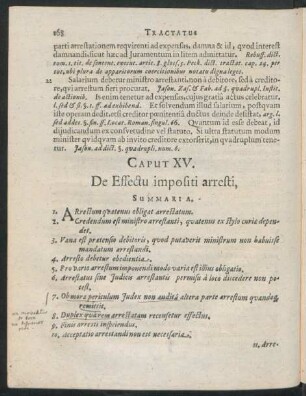 168 TRACTATUS
parti arrestationem requirenti ad expensas, damna & id, quod interest
damnandi: sicut hæc ad Juramentum in litem admittatur. Rebuff. dict.
tom. 1. tit. de
tus, ubi plura de apparitorum coercitionibus notatu digna leges.
22 Salarium debetur ministro arrestanti, non à debitore, sed à credito-
re, qui arrestum fieri procurat. Jason. Zas. & Fab. ad §. quadrupli. Instit.
de actionib. Et in eum tenetur ad expensas, cujus gratia actus celebratur.
l. sed & si §. 1. ff. ad exhibend. Et solvendum illud salarium, postquam
isto operam dedit, et creditor poenitentia ductus deinde desistat, arg. l.
sed addes §. fin. ff. Locat. Roman. singul. 66. Quantum id esse debeat, id
dijudicandum ex consvetudine vel statuto. Si ultra statutum modum
minister quidquam ab invito creditore extorserit, in quadruplum tene-
tur. Jason. ad dict. §. quadrupli. num. 6.
CAPUT XV.
De Effectu impositi arresti,
SUMMARIA.
1. Arrestum quatenus obliget arrestatum.
2. Credendum est ministro arrestanti, quatenus ex stylo curiæ depen-
det.
3. Vana est prætensio debitoris, quod putaverit ministrum non habuisse
mandatum arrestandi.
4. Arresto debetur obedientia.
5. Pro variis arrestum imponendi modo varia est illius obligatio.
6. Arrestatus sine Judicis arrestantis permissu à loco discedere non po-
test.
7. Ob moræ periculum Judex non audita altera parte arrestum quandoq;
remittit.
8. Duplex quarum arrestatam recensetur effectus.
9. Finis arresti inspiciendus.
10. Acceptatio arrestandi non est necessaria.
11. Arre-